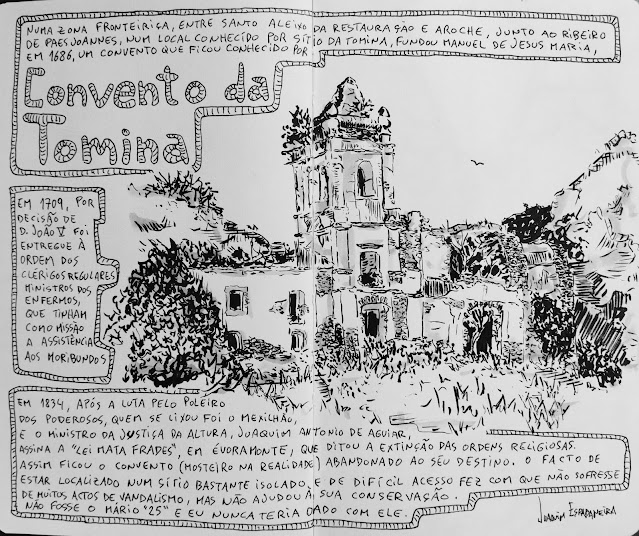 NUMA ZONA FRONTEIRIÇA, ENTRE SANTO ALEIXO DA RESTAURAÇÃO E AROCHE, JUNTO AO RIBEIRO
DE PAES JOANNES, NUM LOCAL CONHECIDO POR SÍTIO DA TOMINA, FUNDOU MANUEL DE JESUS MARIA,
EM 1686, UM CONVENTO QUE FICOU CONHECIDO POR
Convento da
Tomina
EM 1709, POR
DECISÃO DE
D. JOÃO V FOI
ENTREGUE À
ORDEM DOS
CLÉRIGOS REGULARES
MINISTROS DOS
ENFERMOS,
QUE TINHAM
COMO MISSÃO
A ASSISTÊNCIA
AOS MORIBUNDOS
EM 1834, APÓS A LUTA PELO POLEIRO
DOS PODEROSOS, QUEM SE LIXOU FOI O MEXILHÃO,
E O MINISTRO DA JUSTIÇA DA ALTURA, JOAQUIM ANTONIO DE AGUIAR,
ASSINA A "LEI MATA FRADES", EM ÉVORAMONTE, QUE DITOU A EXTINÇÃO DAS ORDENS RELIGIOSAS.
ASSIM FICOU O CONVENTO (MOSTEIRO NA REALIDADE) ABANDONADO AO SEU DESTINO. O FACTO DE
ESTAR LOCALIZADO NUM SÍTIO BASTANTE ISOLADO E DE DIFÍCIL ACESSO FEZ COM QUE NÃO SOFRESSE
DE MUITOS ACTOS DE VANDALISMO, MAS NÃO AJUDOU À SUA CONSERVAÇÃO.
NÃO FOSSE O MÁRIO "25" E EU NUNCA TERIA DADO COM ELE.
JOAQUIM ESPADANEIRA